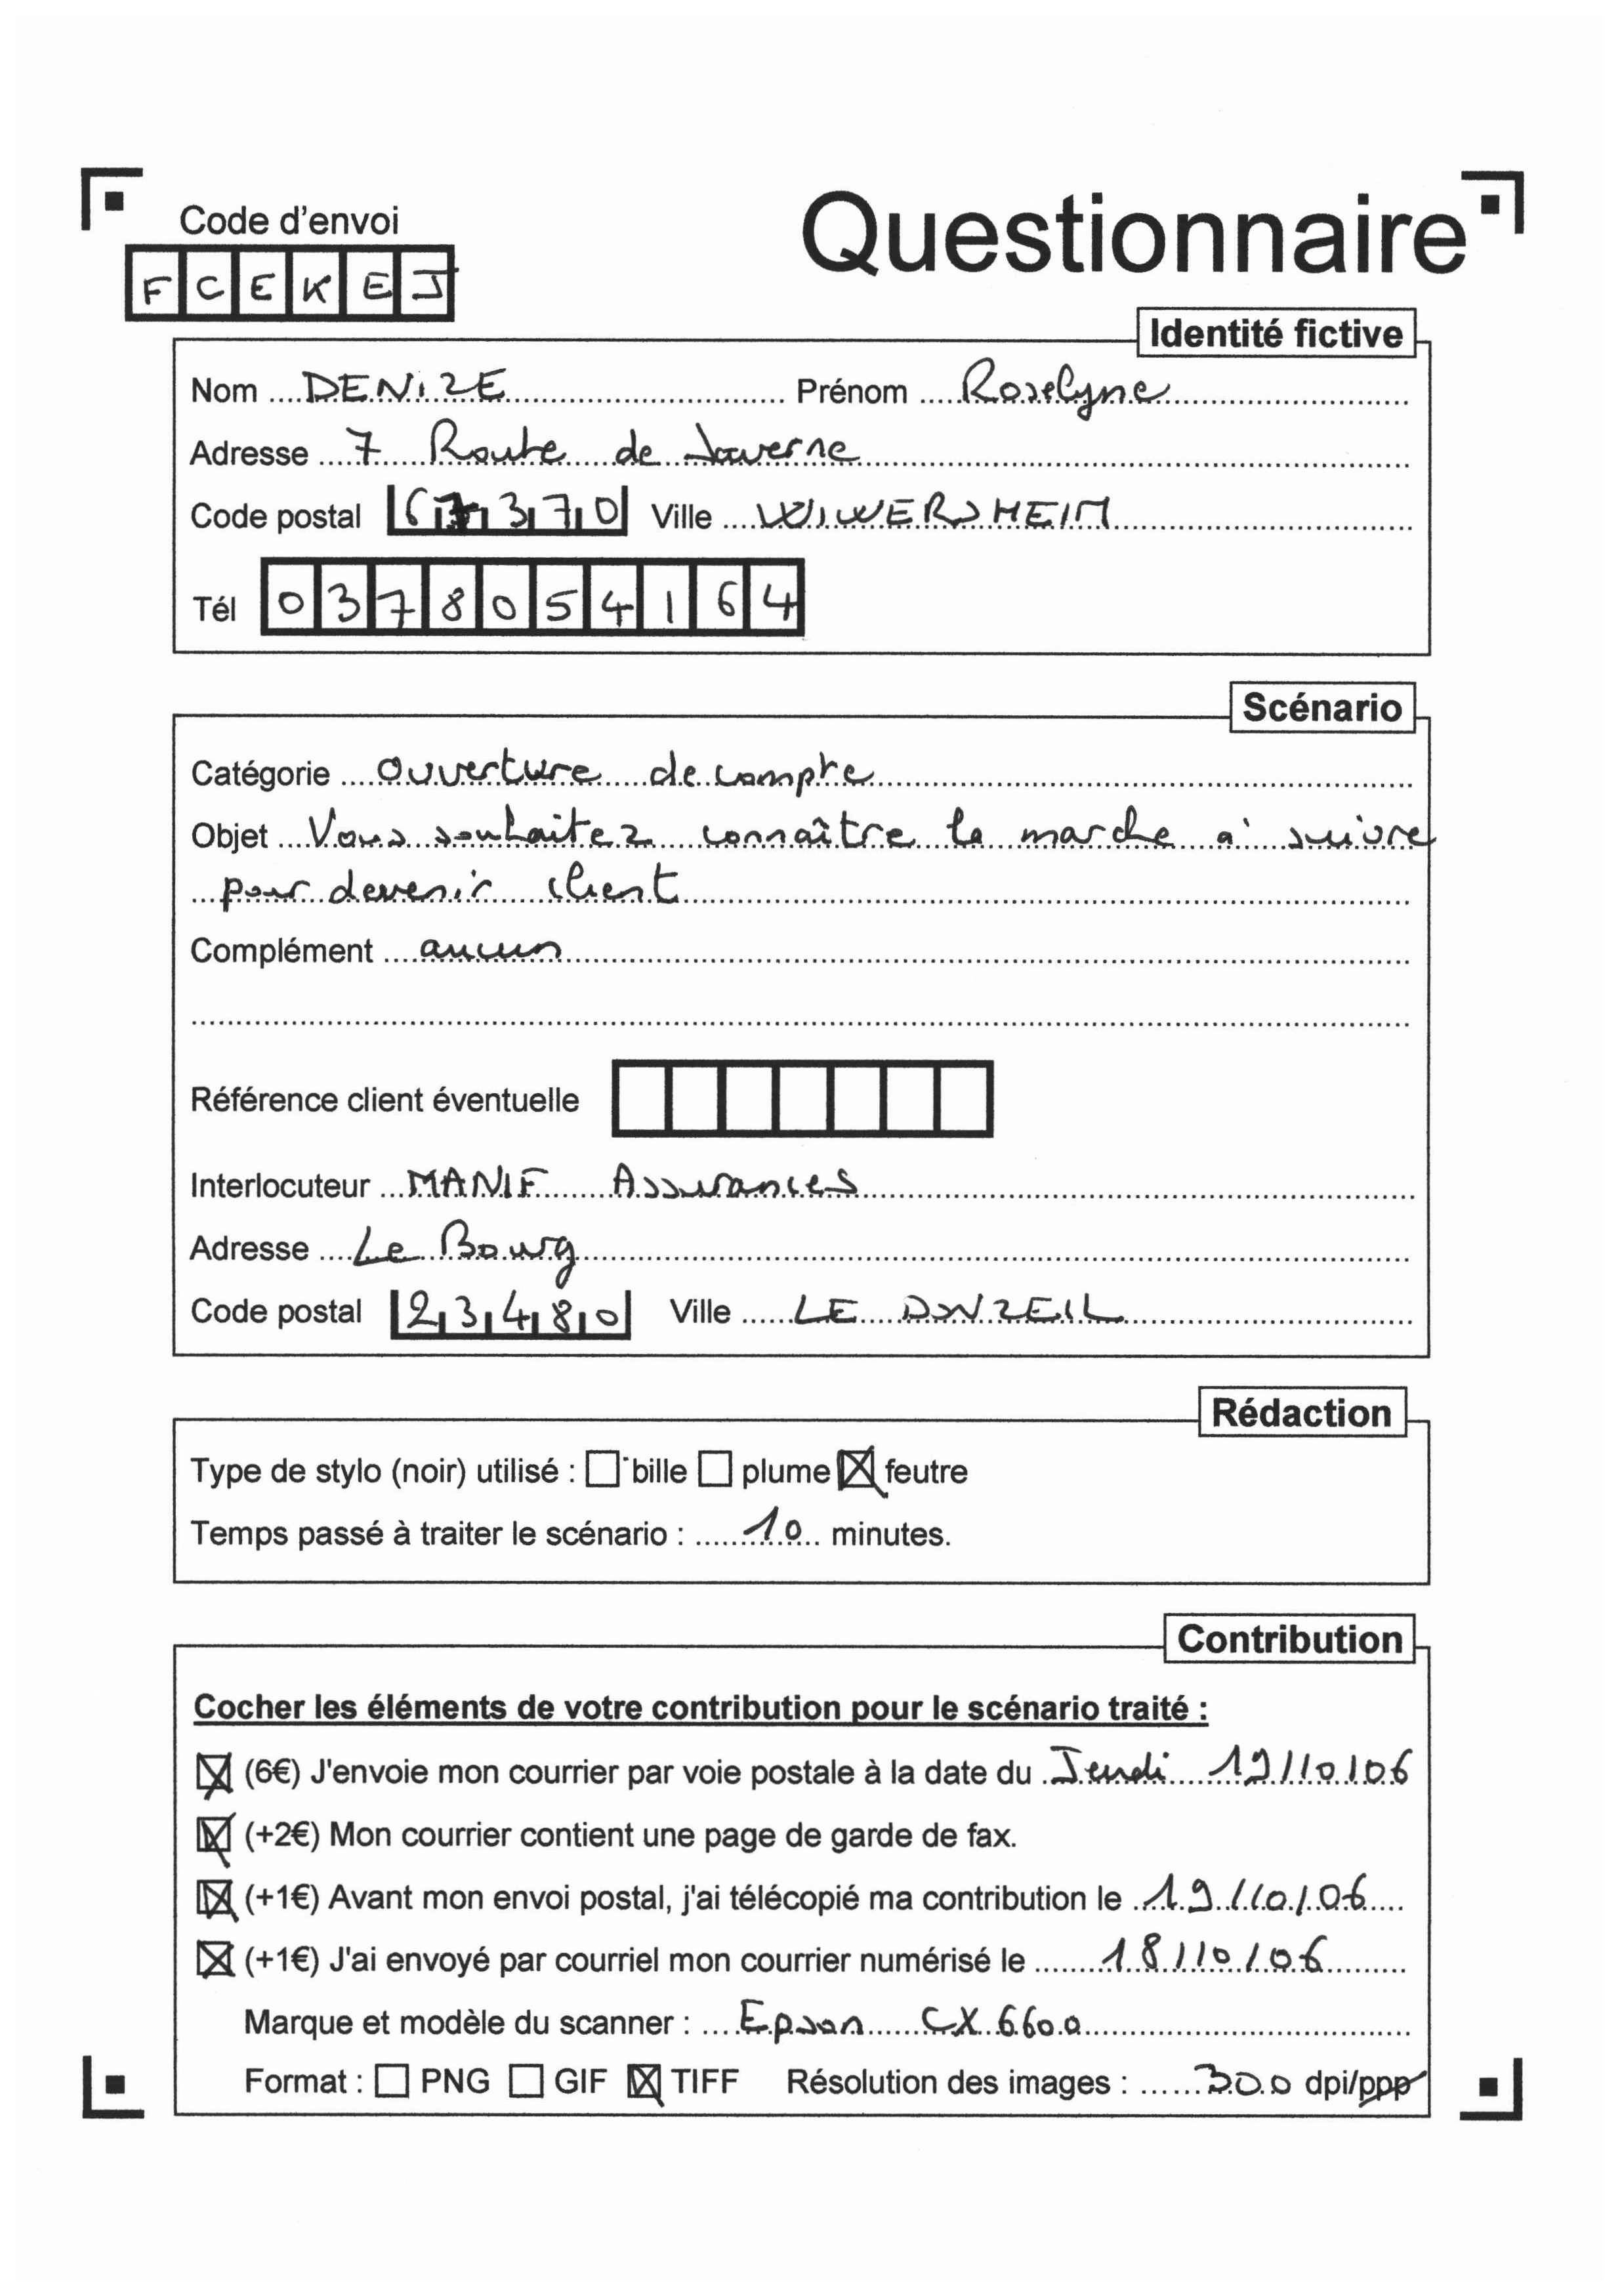 Questionnaire
Code d'envoi
FCEKEJ
Identité fictive
Nom DENIZE Prénom Roselyne
Adresse 7 Route de Saverne
Code postal 67370 Ville WIWERSHEIM
Tél 0378054164
Scénario
Catégorie Ouverture de compte
Objet Vous souhaitez connaître la marche à suivre
pour devenir client
Complément aucun
Référence client éventuelle
Interlocuteur MANIF Assurances
Adresse Le Bourg
Code postal 23480 Ville LE DONZEIL
Rédaction
Type de stylo (noir) utilisé : bille plume feutre
Temps passé à traiter le scénario : 10 minutes.
Contribution
Cocher les éléments de votre contribution pour le scénario traité :
(6€) J'envoie mon courrier par voie postale à la date du Jeudi 19/10/06
(+2€) Mon courrier contient une page de garde de fax.
(+1€) Avant mon envoi postal, j'ai télécopié ma contribution le 19/10/06
(+1€) J'ai envoyé par courriel mon courrier numérisé le 18/10/06
Marque et modèle du scanner : Epson CX 6600
Format : PNG GIF TIFF Résolution des images : 300 dpi/ppp